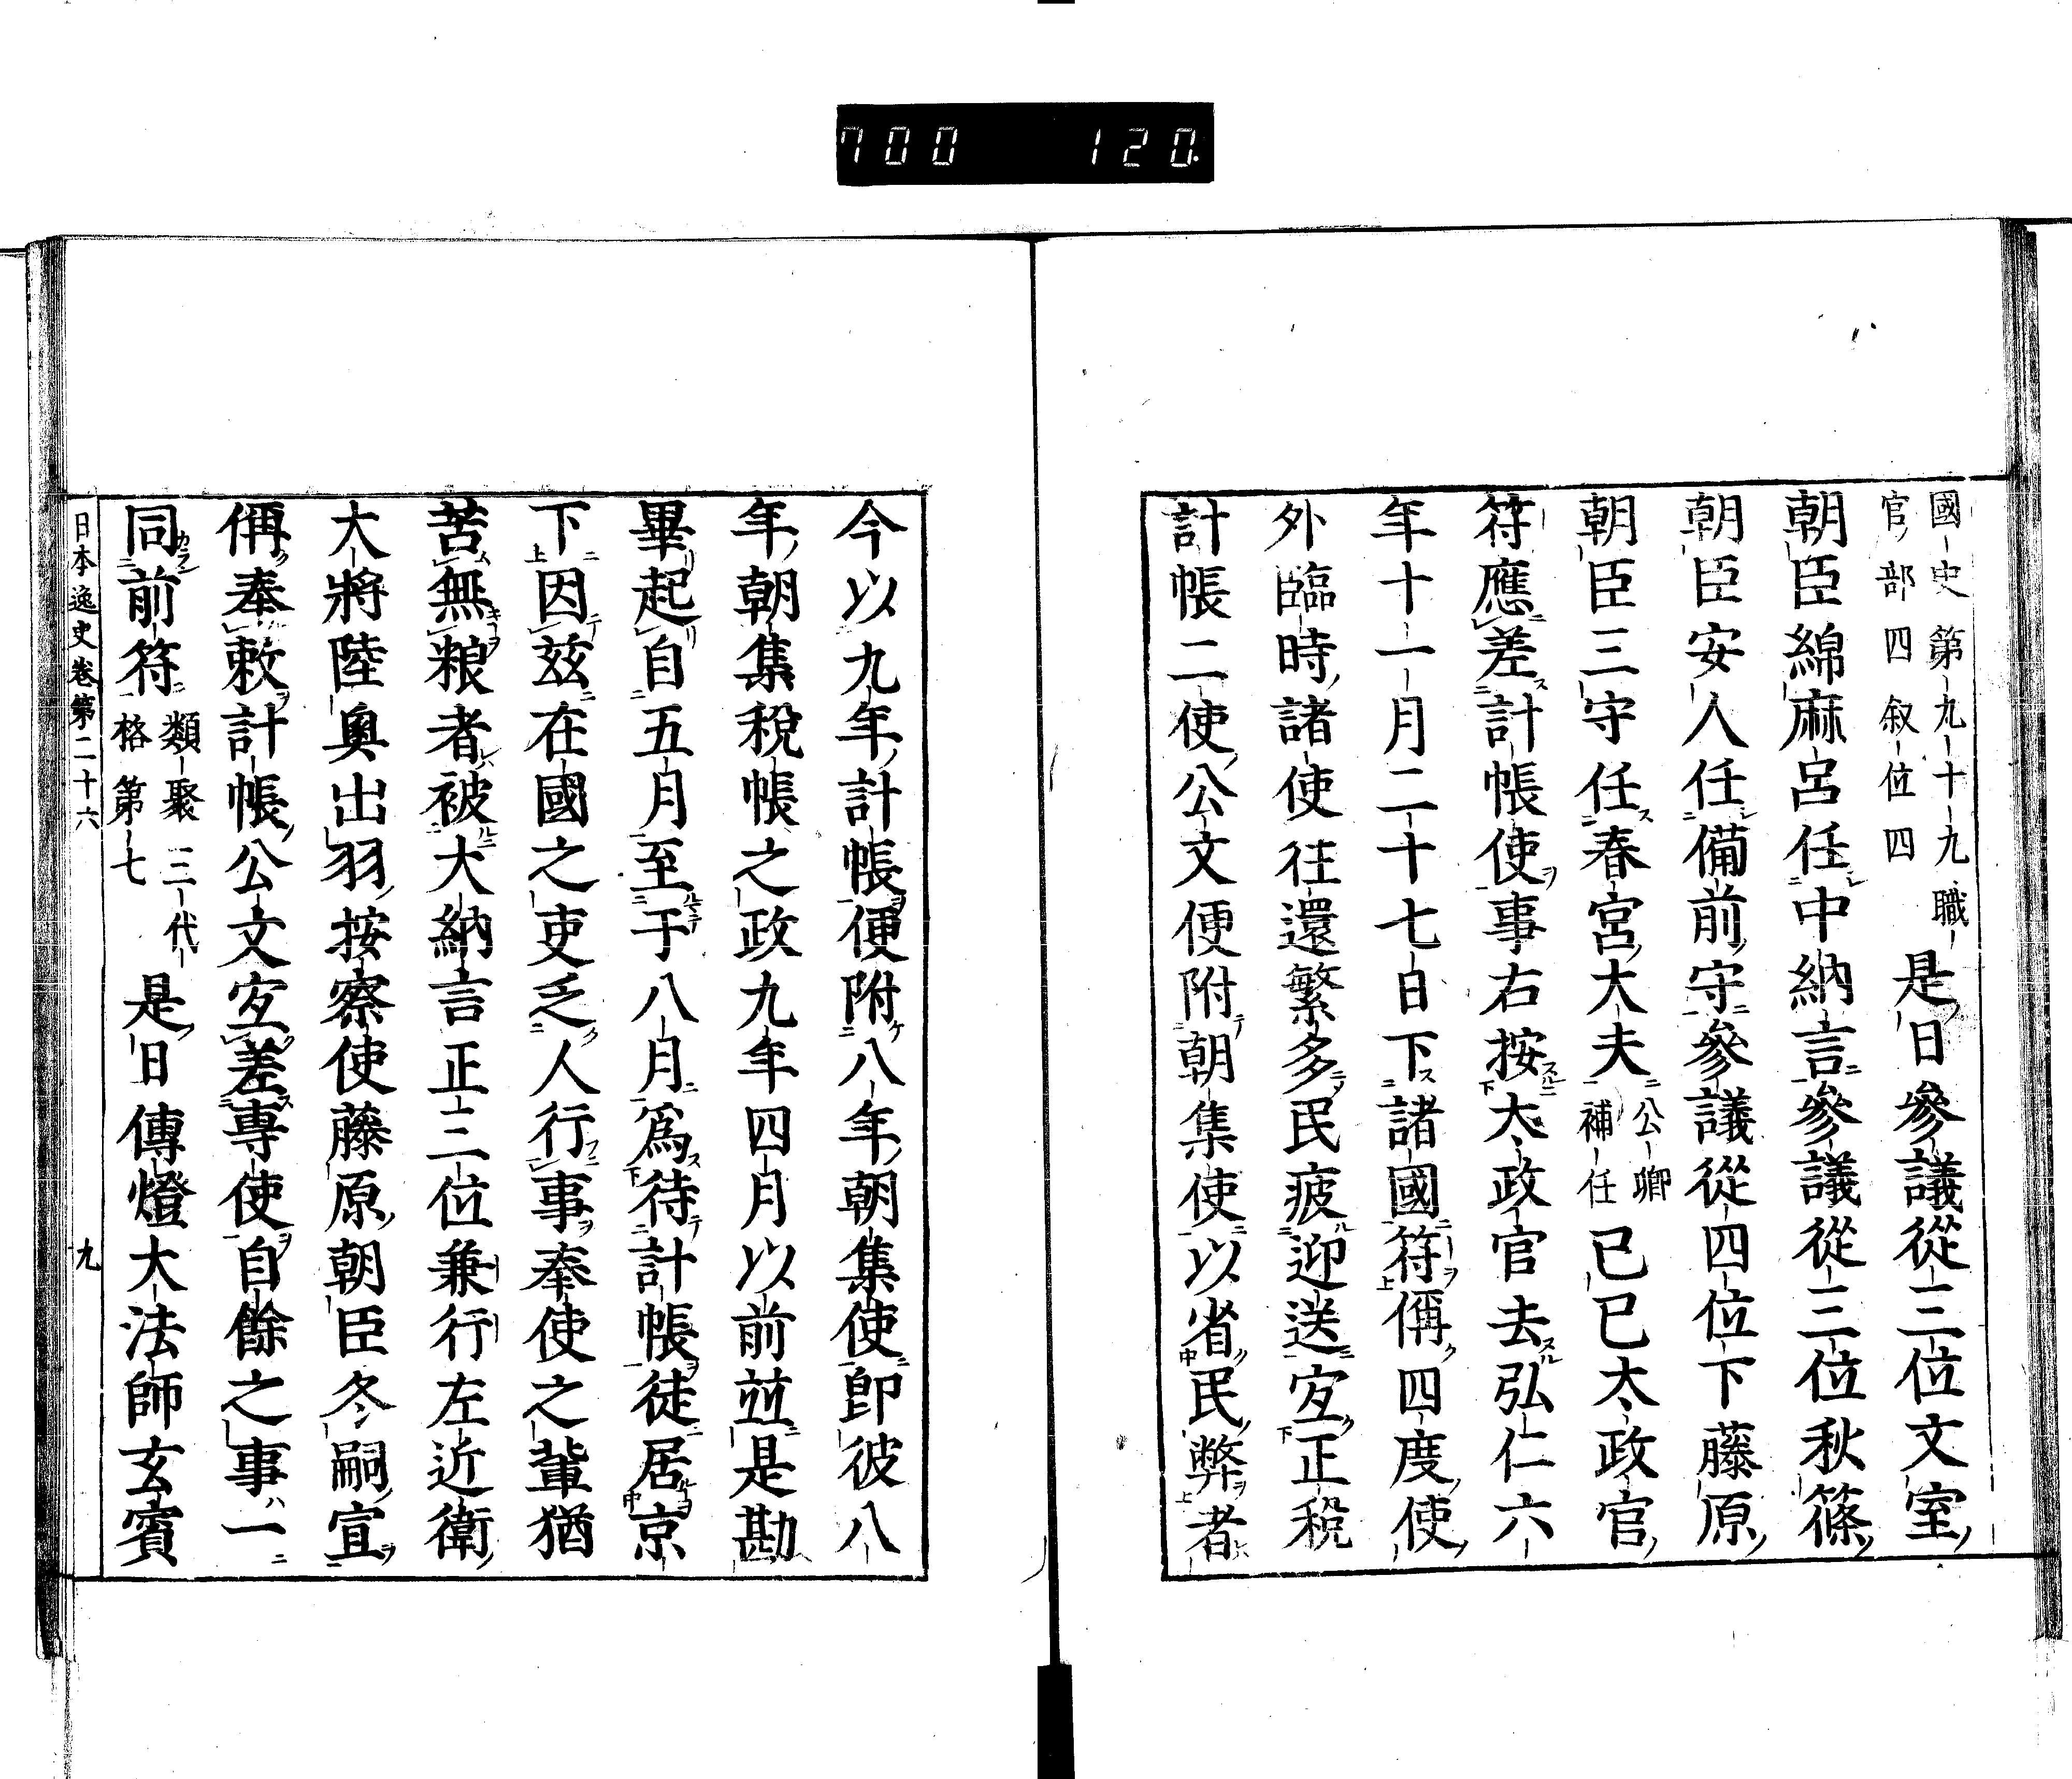 700 120.
國史第九十九職
官部四叙位四
是日參議從三位文室
朝臣綿麻呂任中納言參議從三位秋篠
朝臣安人任備前守參議從四位下藤原
朝臣三守任春宮大夫公卿補任己巳太政官
符應差計帳使事右按太政官去弘仁六
年十一月二十七日下諸國符偁四度使
外臨時諸使往還繁多民疲迎送宜正税
計帳二使公文便附朝集使以省民弊者
今以九年計帳便附八年朝集使即彼八
年朝集税帳之政九年四月以前並是勘
畢起自五月至于八月爲待計帳徒居京
下因茲在國之吏乏人行事奉使之輩猶
苦無粮者被大納言正三位兼行左近衛
大將陸奥出羽按察使藤原朝臣冬嗣宣
偁奉敕計帳公文宜差專使自餘之事一
同前符類聚三代格第七是日傳燈大法師玄賓
日本逸史卷第二十六 九